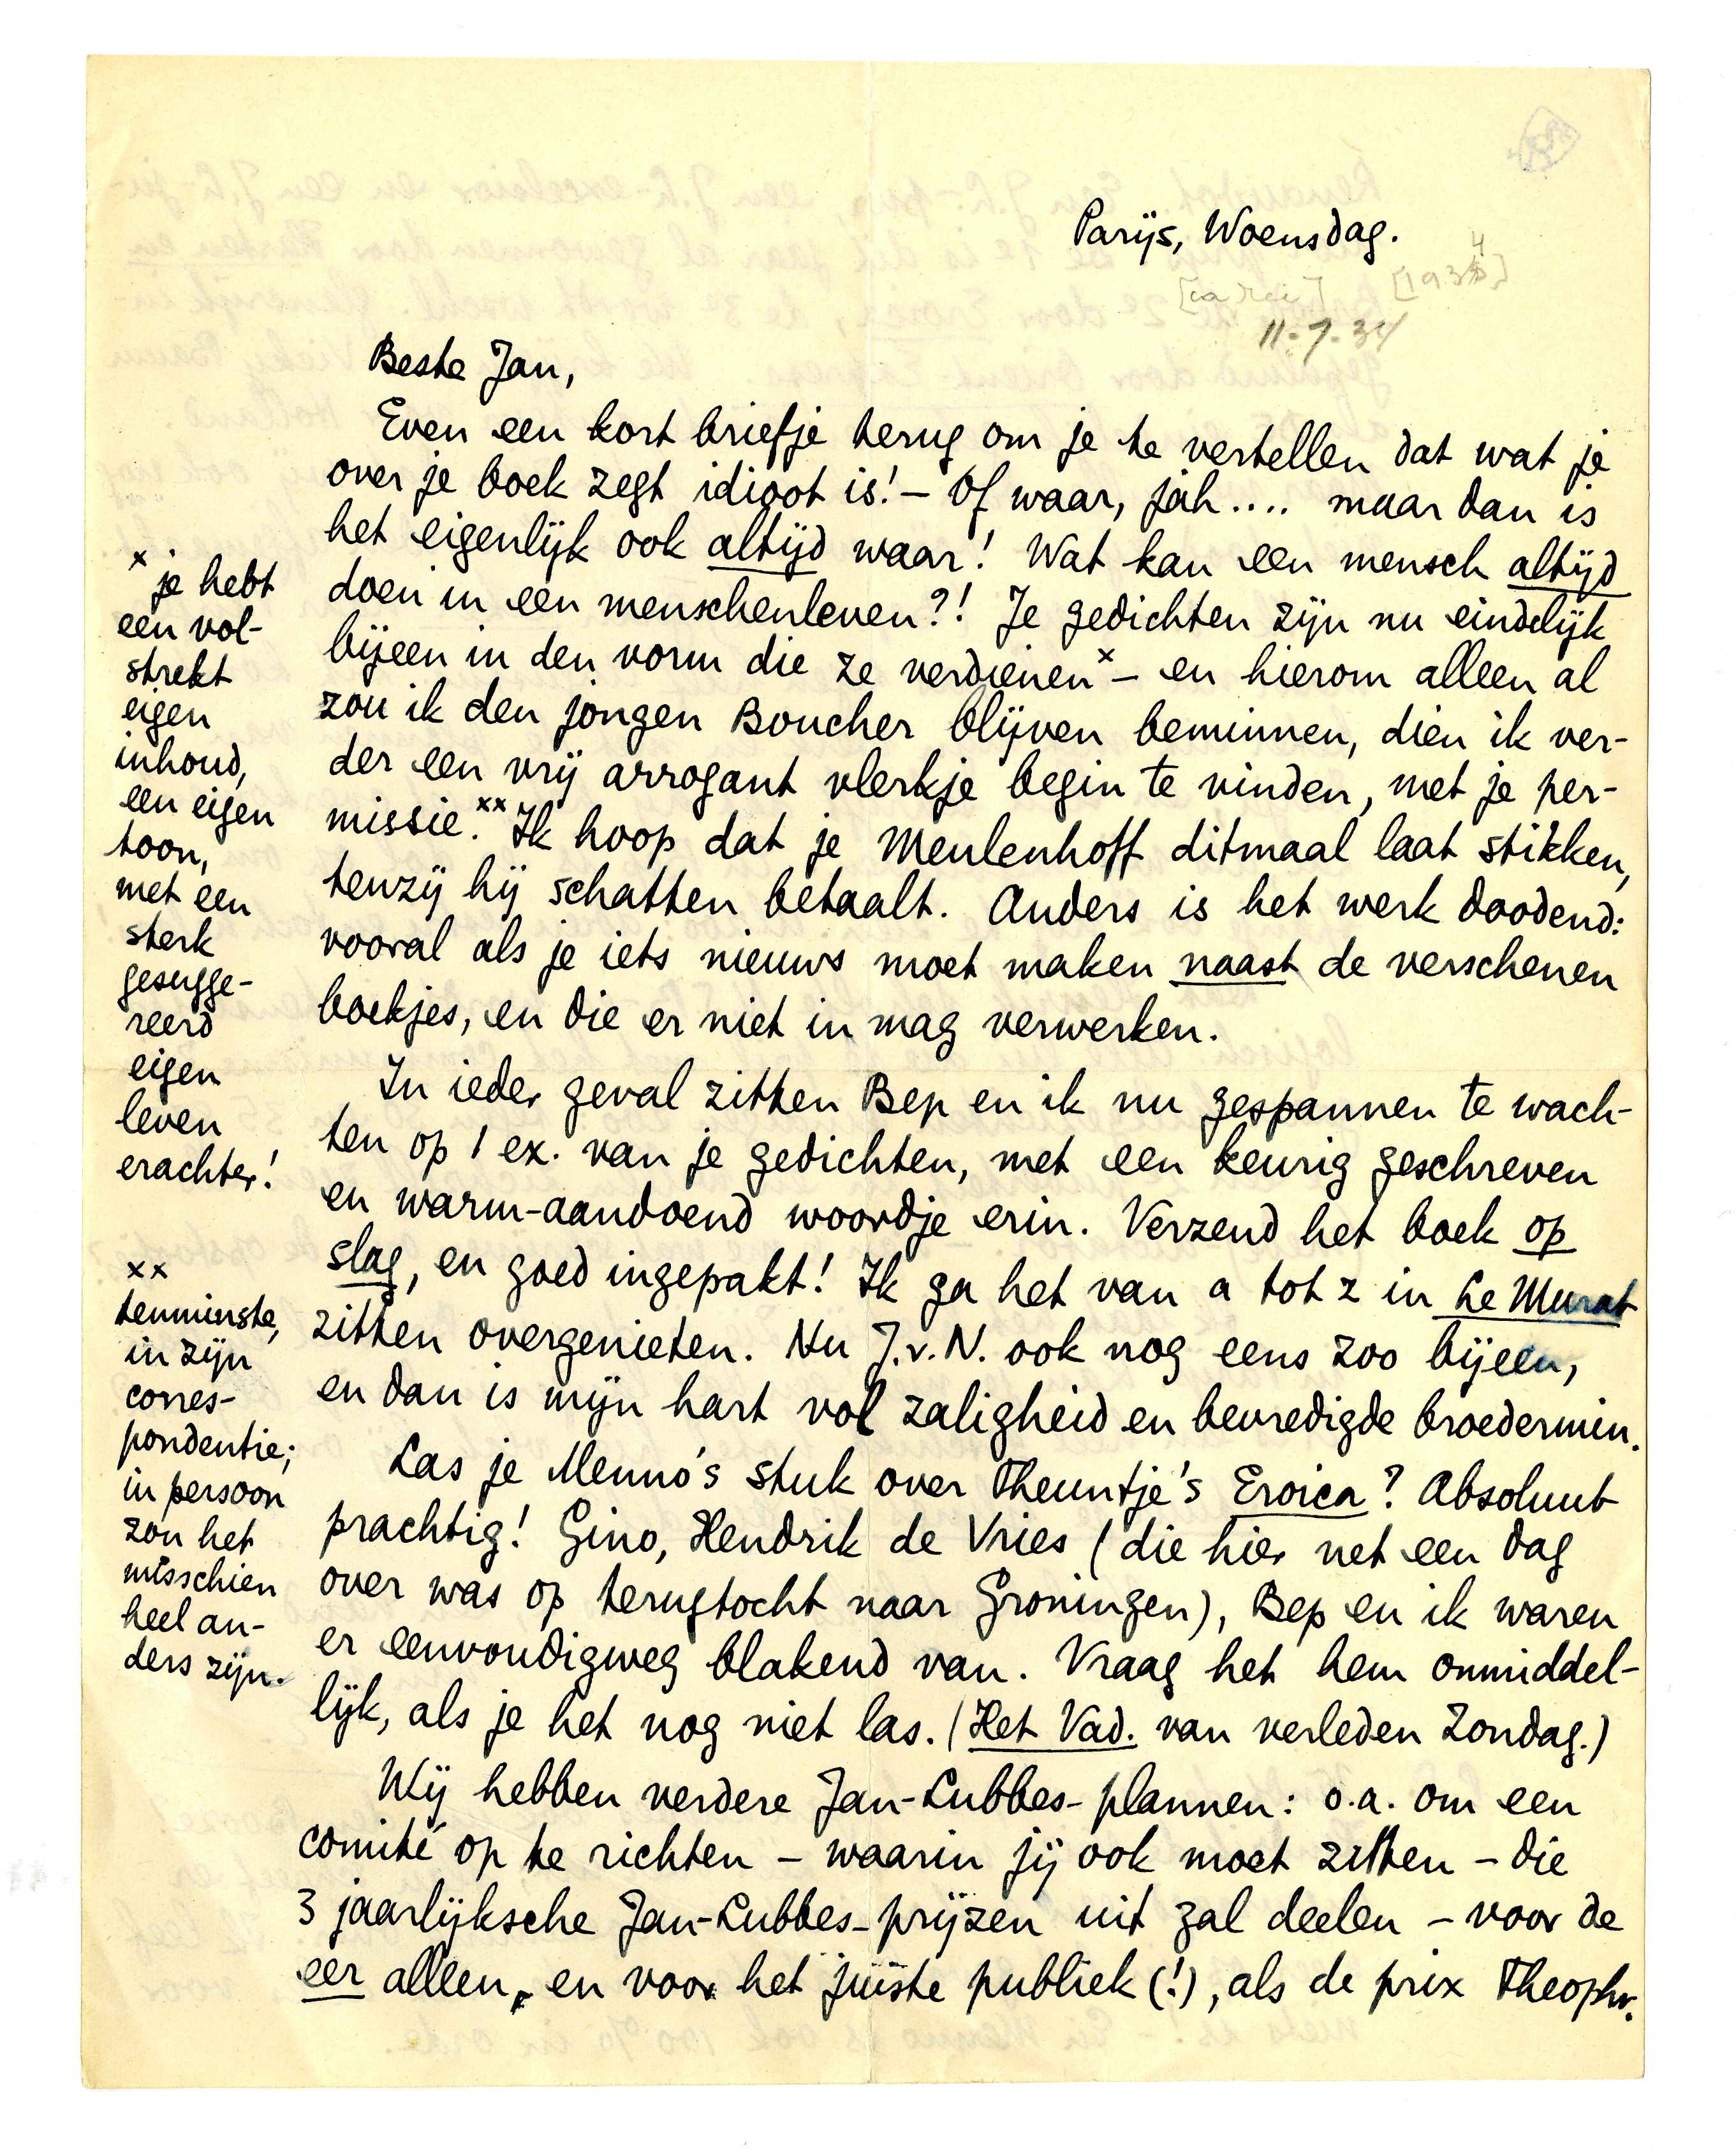 Parijs, Woensdag.
[1934]
11-7-34
Beste Jan,
Even een kort briefje terug om je te vertellen dat wat je
over je boek zegt idioot is! – Of waar, jah.... maar dan is
het eigenlijk ook altijd waar! Wat kan een mensch altijd
doen in een menschenleven?! Je gedichten zijn nu eindelijk
bijeen in den vorm die ze verdienen x – en hierom alleen al
zou ik den jongen Boucher blijven beminnen, dien ik ver-
der een vrij arrogant vlerkje begin te vinden, met je per-
missie. xx Ik hoop dat je Meulenhoff ditmaal laat stikken,
tenzij hij schatten betaalt. Anders is het werk doodend:
vooral als je iets nieuws moet maken naast de verschenen
boekjes, en die er niet in mag verwerken.
In ieder geval zitten Bep en ik nu gespannen te wach-
ten op 1 ex. van je gedichten, met een keurig geschreven
en warm-aandoend woordje erin. Verzend het boek op
slag, en goed ingepakt! Ik ga het van a tot z in Le Murat
zitten overgenieten. Nu J.v.N. ook nog eens zoo bijeen,
en dan is mijn hart vol zaligheid en bevredigde broedermin.
Las je Menno's stuk over Theuntje's Eroica? Absoluut
prachtig! Gino, Hendrik de Vries (die hier net een dag
over was op terugtocht naar Groningen), Bep en ik waren
er eenvoudigweg blakend van. Vraag het hem onmiddel-
lijk, als je het nog niet las. (Het Vad. van verleden Zondag.)
Wij hebben verdere Jan-Lubbes-plannen: o.a. om een
comité op te richten – waarin jij ook moet zitten – die
3 jaarlijksche Jan-Lubbes-prijzen uit zal deelen – voor de
eer alleen, en voor het júiste publiek (!), als de prix Theophr.
x je hebt
een vol-
strekt
eigen
inhoud,
een eigen
toon,
met een
sterk
gesugge-
reerd
eigen
leven
erachter!
xx
tenminste,
in zijn
corres-
pondentie;
in persoon
zou het
misschien
heel an-
ders zijn.